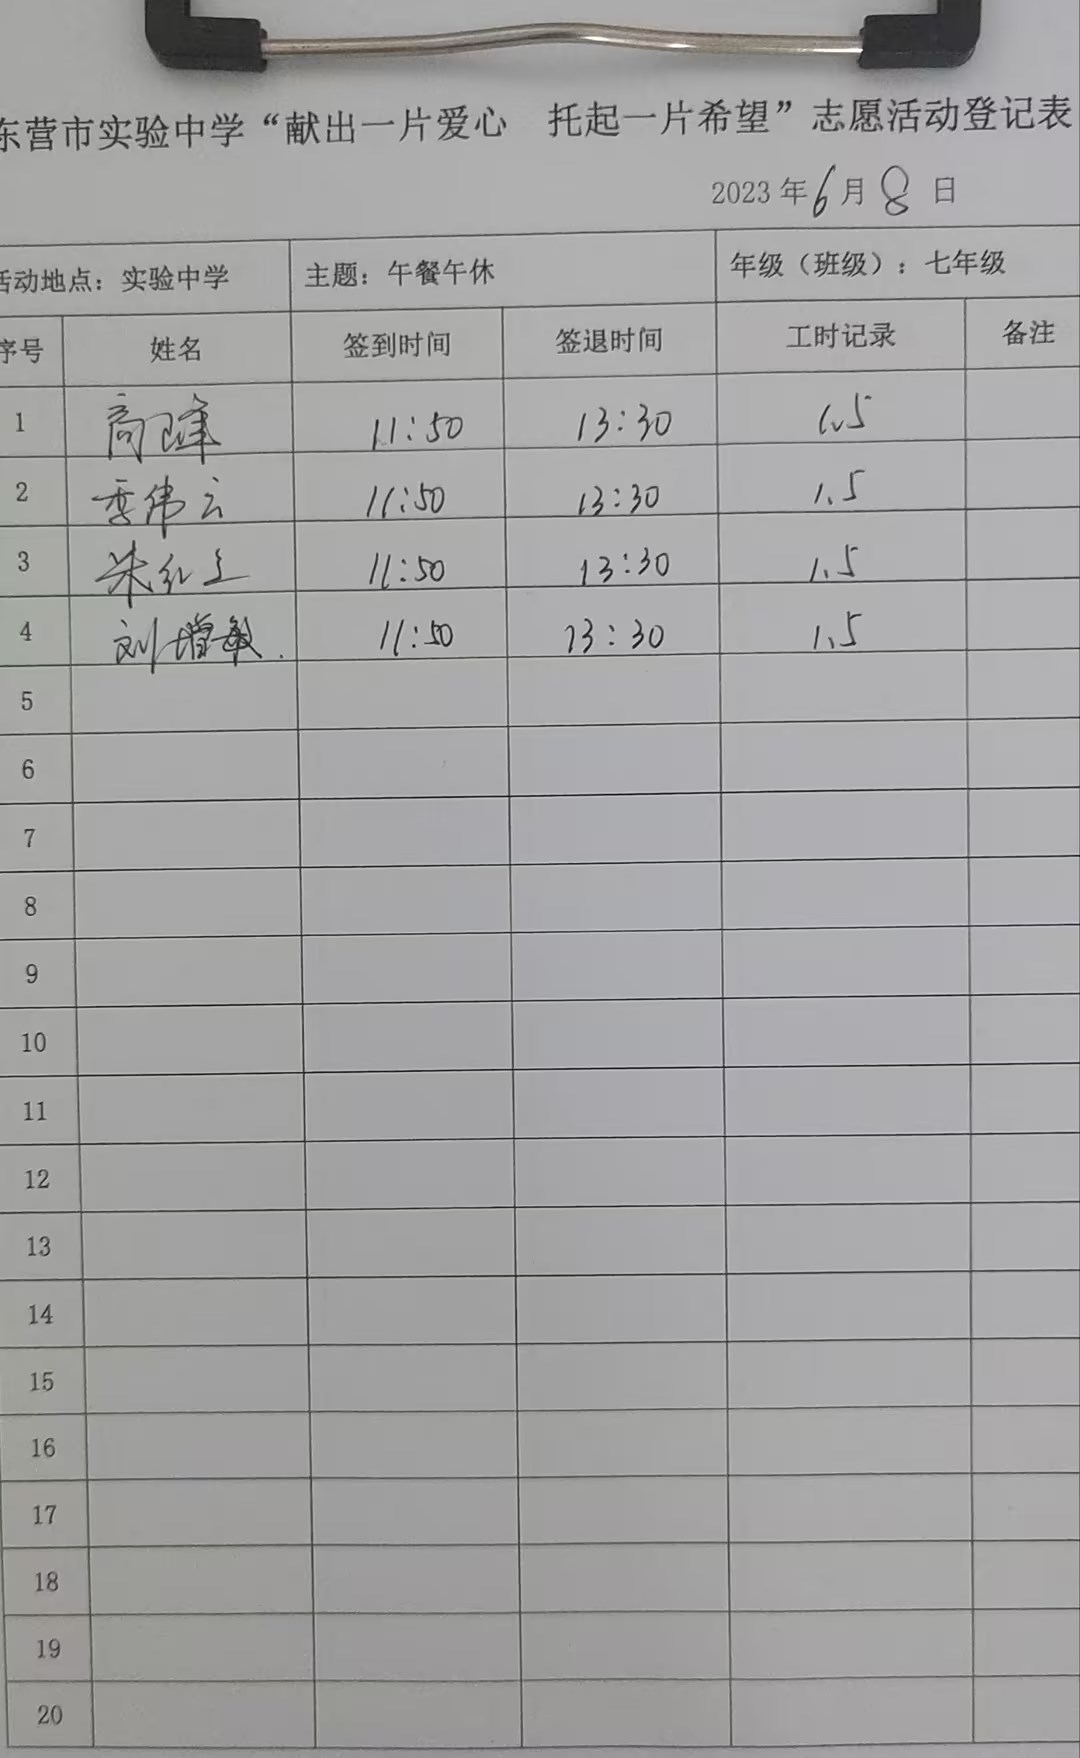 东营市实验中学“献出一片爱心 托起一片希望”志愿活动登记表
2023年6月8日
活动地点：实验中学 主题：午餐午休 年级（班级）：七年级
序号 姓名 签到时间 签退时间 工时记录 备注
1 11:50 13:30 1.5
2 季伟云 11:50 13:30 1.5
3 朱红 11:50 13:30 1.5
4 刘增敏 11:50 13:30 1.5
5
6
7
8
9
10
11
12
13
14
15
16
17
18
19
20